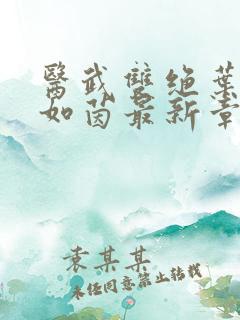 醫武雙绝葉
如茵最新章
袁某某
未经同意禁止转载